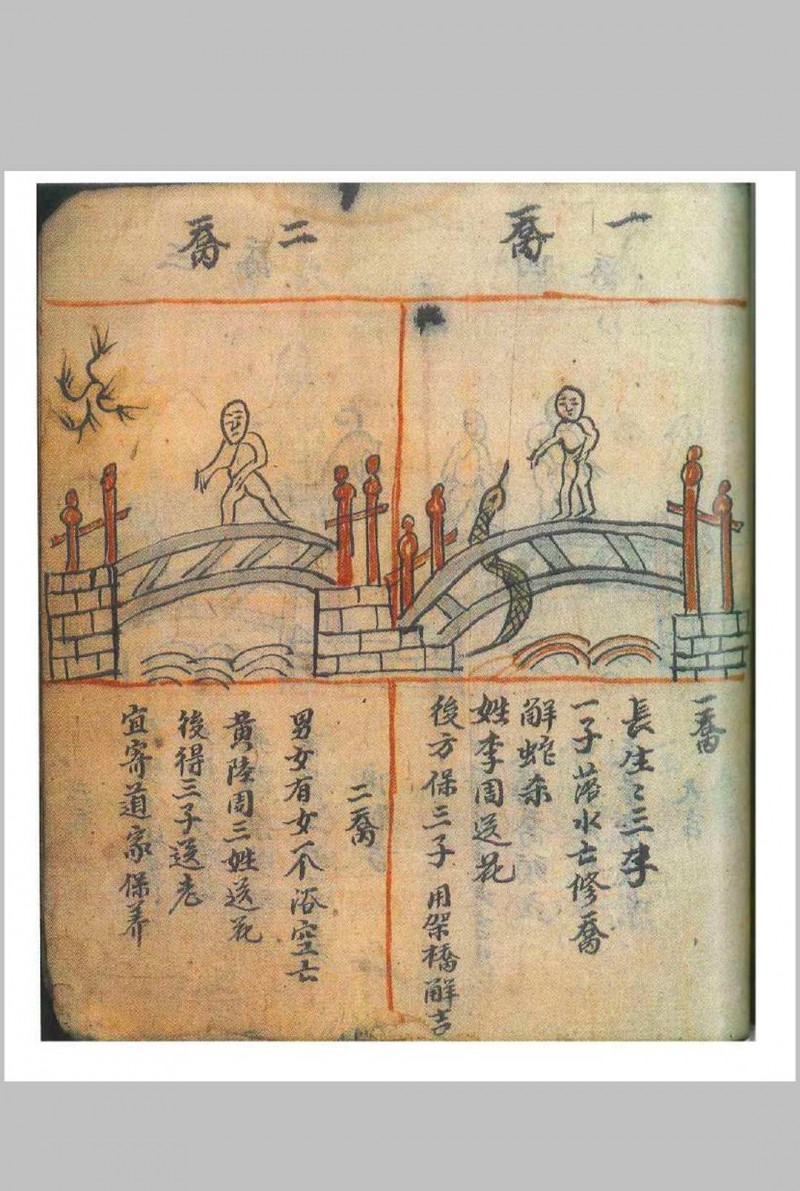 一喬
二喬
一喬
長生〻三李
一子落水亡修喬
解蛇杀
姓李周送花
後方保三子用架橋解吉
二喬
男女有女不浴空亡
黄陸周三姓送花
後得三子送老
宜寄道家保养